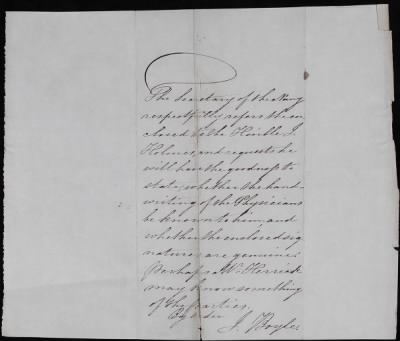 The Secretary of the Navy
respectfully refers the en
closed to the Honble J.
Holmes, and requests he
will have the goodness to
state, whether the hand-
writing of the Physicians
be known to him, and
whether the enclosed sig
natures are genuine.
Perhaps Mr Herrick
may know something
of the parties.
By order
J. Boyle